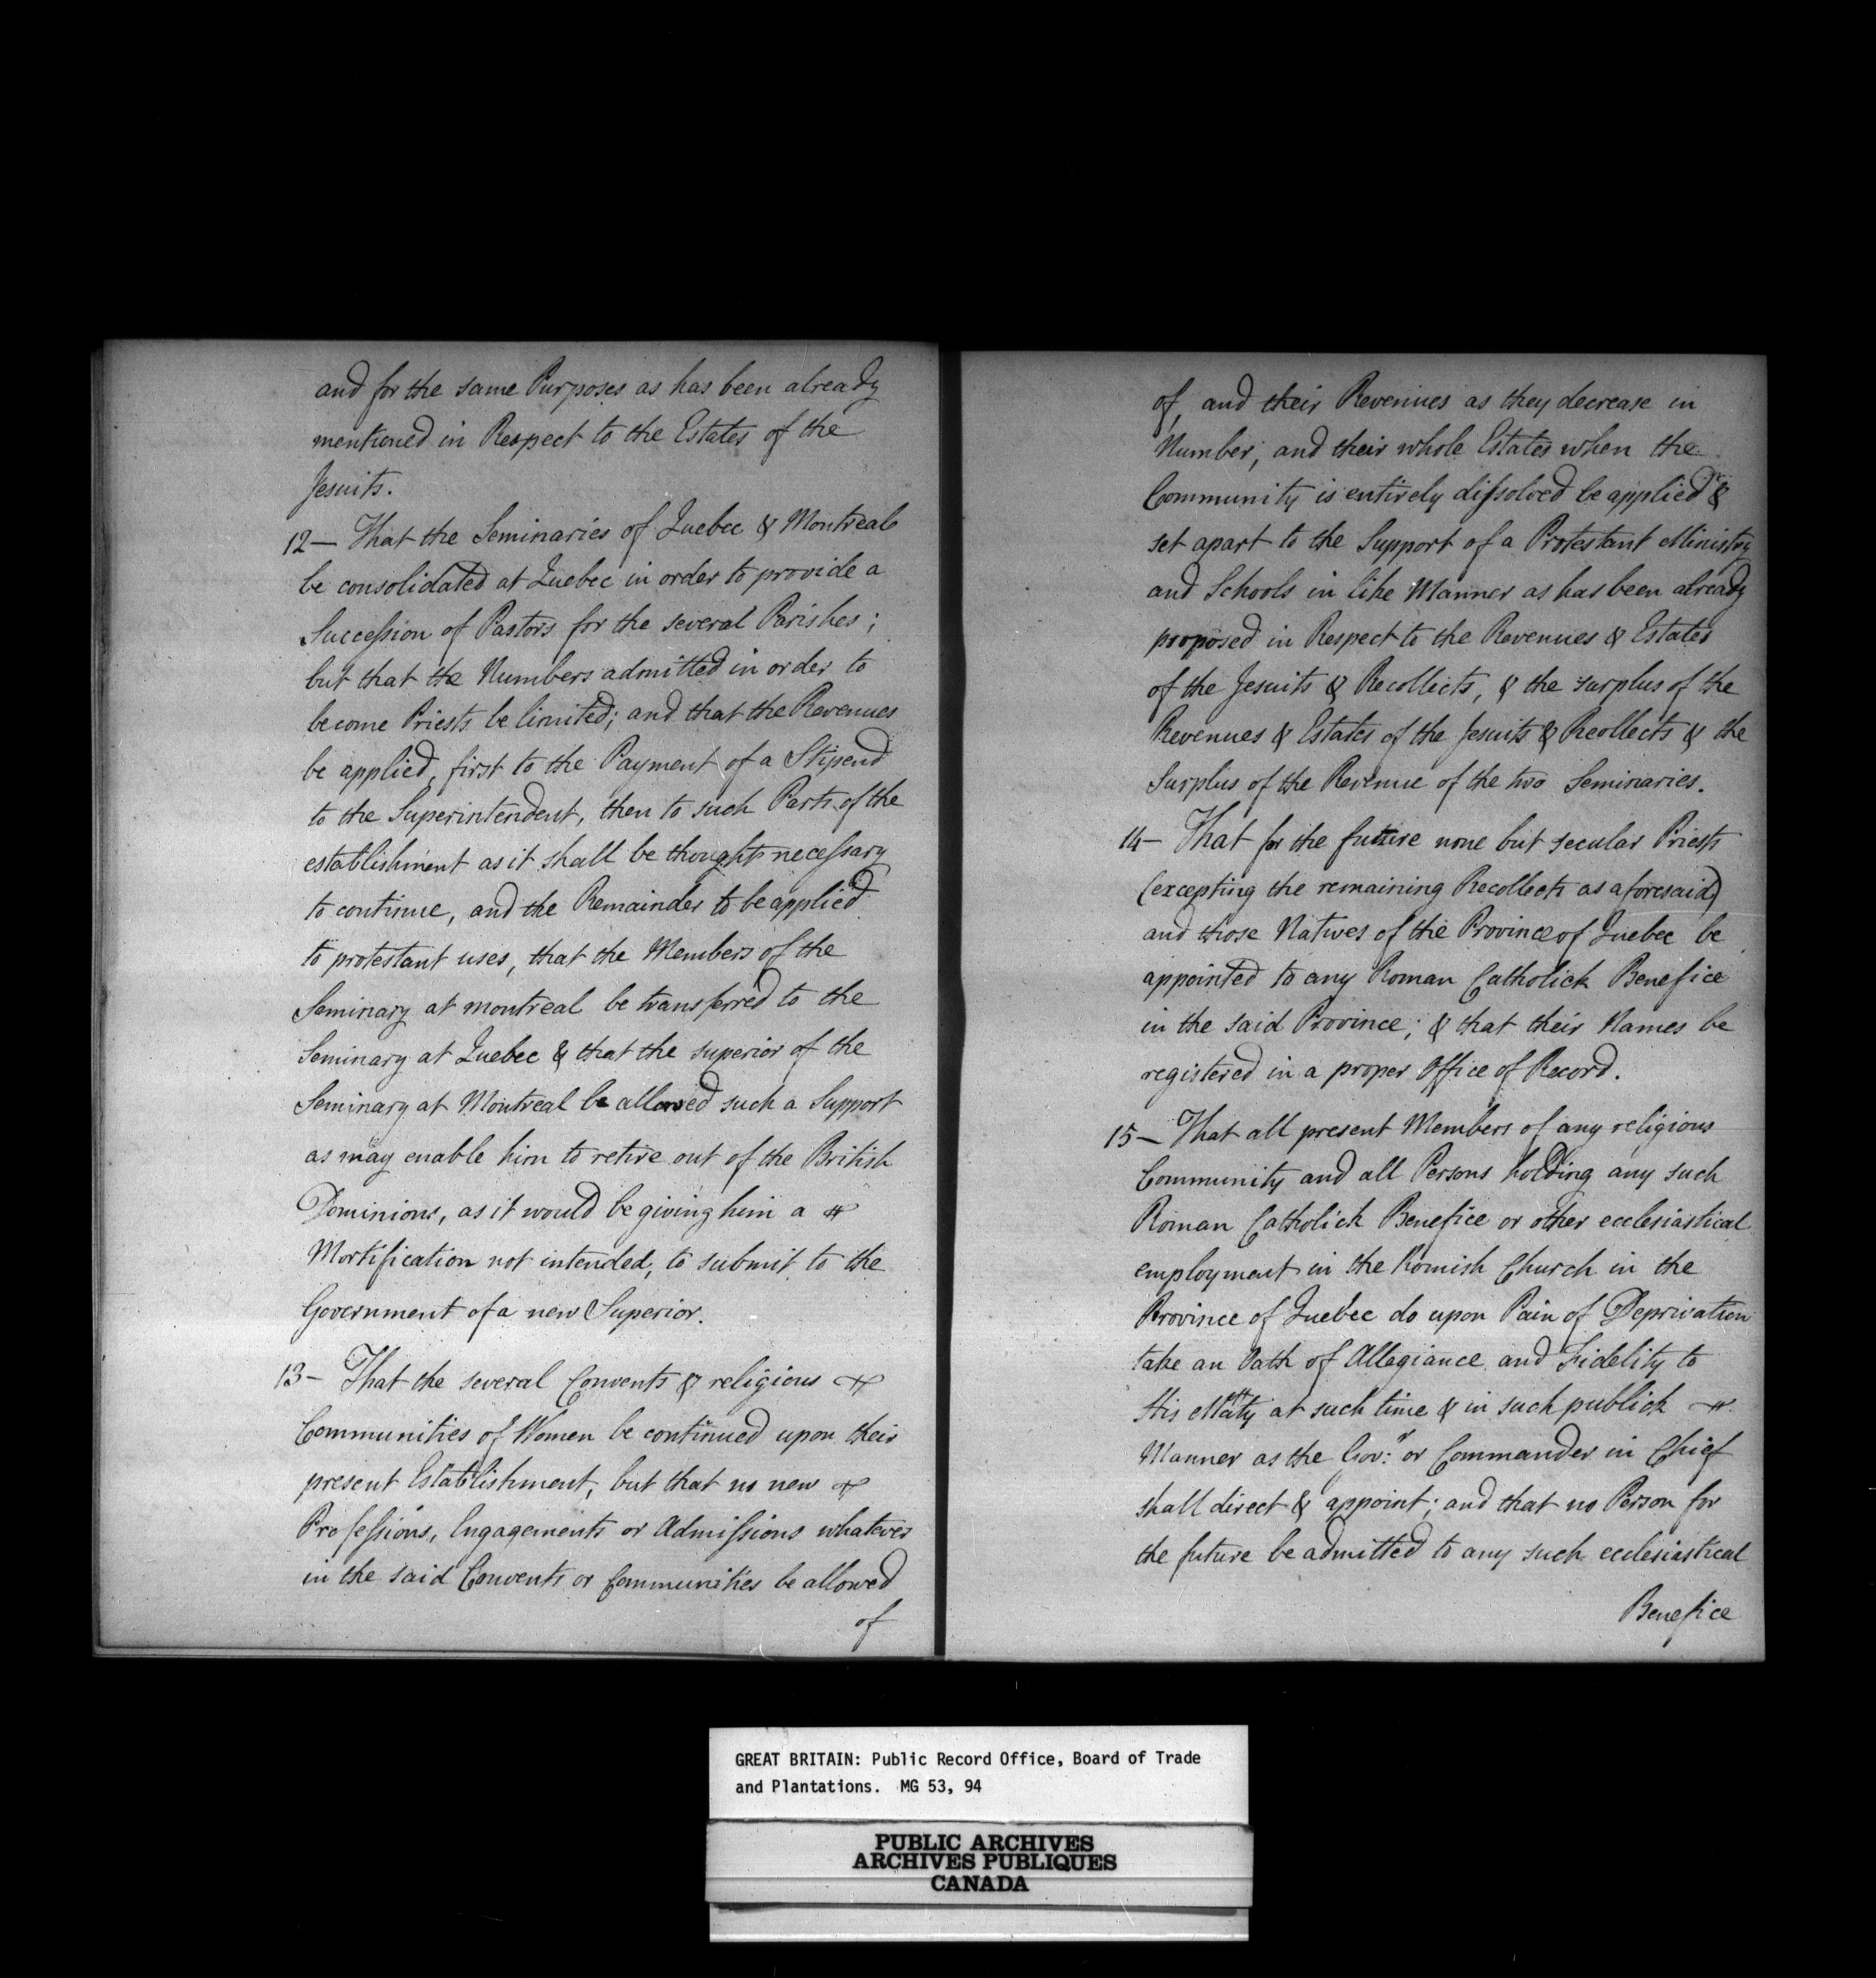 and for the same Purposes as has been already
mentioned in Respect to the Estates of the
Jesuits.
12— That the Seminaries of Quebec & Montreal
be consolidated at Quebec in order to provide a
Succession of Pastors for the several Parishes;
but that the Numbers admitted in order to
become Priests be limited; and that the Revenues
be applied, first to the Payment of a Stipend
to the Superintendent, then to such Parts of the
establishment as it shall be thought necessary
to continue, and the Remainder to be applied
to protestant uses, that the Members of the
Seminary at montreal be transferred to the
Seminary at Quebec & that the superior of the
Seminary at Montreal be allowed such a Support
as may enable him to retire out of the British
Dominions, as it would be giving him a
Mortification not intended, to submit to the
Government of a new Superior.
13— That the several Convents & religious
Communities of Women be continued upon their
present Establishment, but that no new
Professions, Engagements or Admissions whatever
in the said Convents or Communities be allowed
of
of, and their Revenues as they decrease in
Number, and their whole Estates when the
Community is entirely dissolved be applied &
set apart to the Support of a Protestant Ministry
and Schools in like Manner as has been already
proposed in Respect to the Revenues & Estates
of the Jesuits & Recollects, & the surplus of the
Revenues & Estates of the Jesuits & Recollects & the
Surplus of the Revenue of the two Seminaries.
14— That for the future none but secular Priests
(excepting the remaining Recollects as aforesaid)
and those Natives of the Province of Quebec be
appointed to any Roman Catholick Benefice
in the said Province; & that their Names be
registered in a proper Office of Record.
15— That all present Members of any religious
Community and all Persons holding any such
Roman Catholick Benefice or other ecclesiastical
employment in the Romish Church in the
Province of Quebec do upon Pain of Deprivation
take an Oath of Allegiance and Fidelity to
His Maty at such time & in such publick
Manner as the Gov:r or Commander in Chief
shall direct & appoint; and that no Person for
the future be admitted to any such ecclesiastical
Benefice
GREAT BRITAIN: Public Record Office, Board of Trade
and Plantations. MG 53, 94
PUBLIC ARCHIVES
ARCHIVES PUBLIQUES
CANADA